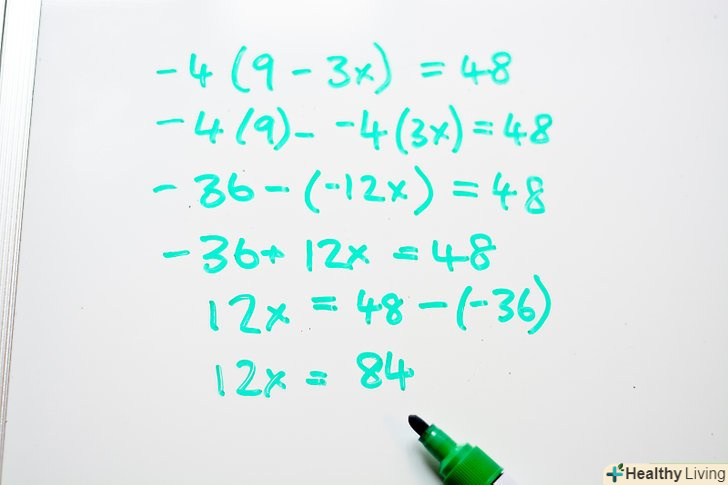 -4(9-3x) = 48
-4(9)- -4(3x)=48
-36-(-12x)=48
-36+ 12x =48
12x = 48-(-36)
12x = 84
Healthy Living